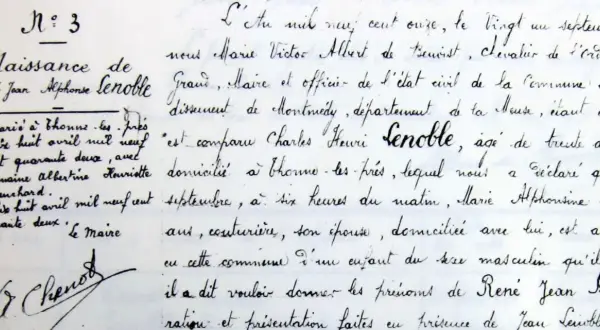 N° 3
Naissance de
Jean Alphonse Lenoble
marié à Thonne-les-Prés
huit avril mil neuf
quarante deux, avec
Albertine Henriette
huit avril mil neuf cent
deux.
Le Maire
L'An mil neuf cent onze, le Vingt un septem
nous Marie Victor Albert de Benoist, Chevalier de l'Ord
Grand, Maire et officier de l'état civil de la Commune
dissement de Montmédy, département de la Meuse, étant
est comparu Charles Henri Lenoble, âgé de trente
domicilié à Thonne-les-prés, lequel nous a déclaré q
septembre, à six heures du matin, Marie Alphonsine
ans, couturière, son épouse, domiciliée avec lui, est a
en cette commune d'un enfant du sexe masculin qu'il
il a dit vouloir donner les prénoms de René Jean
ration et présentation faites en présence de Jean Lenobl